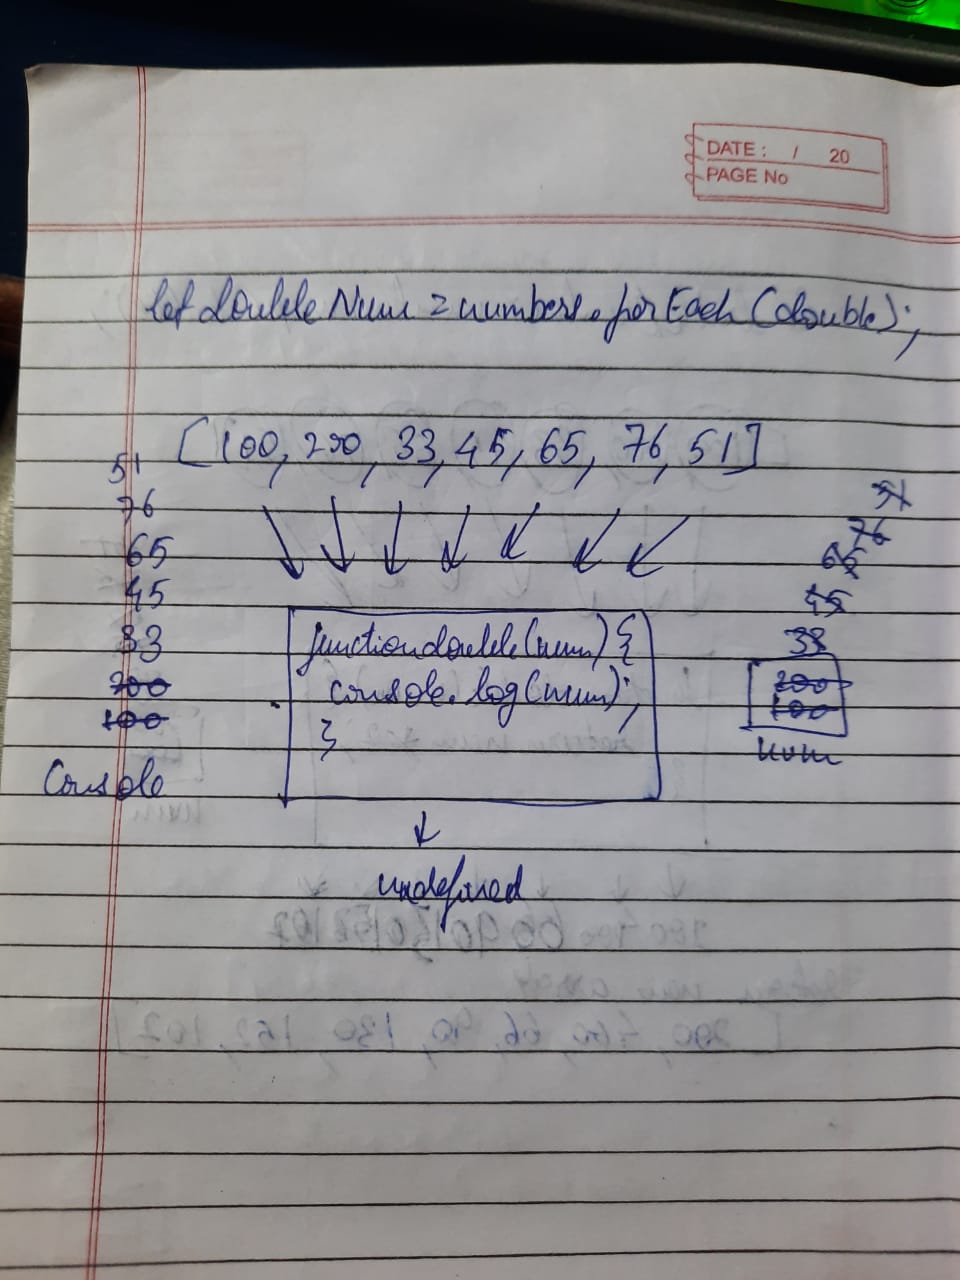 DATE : / 20
PAGE No
let double Num = numbers.forEach(double);
[100, 200, 33, 45, 65, 76, 51]
51
76
65
45
33
200
100
Console
function double(num) {
console.log(num);
}
51
76
65
45
33
200
100
num
undefined